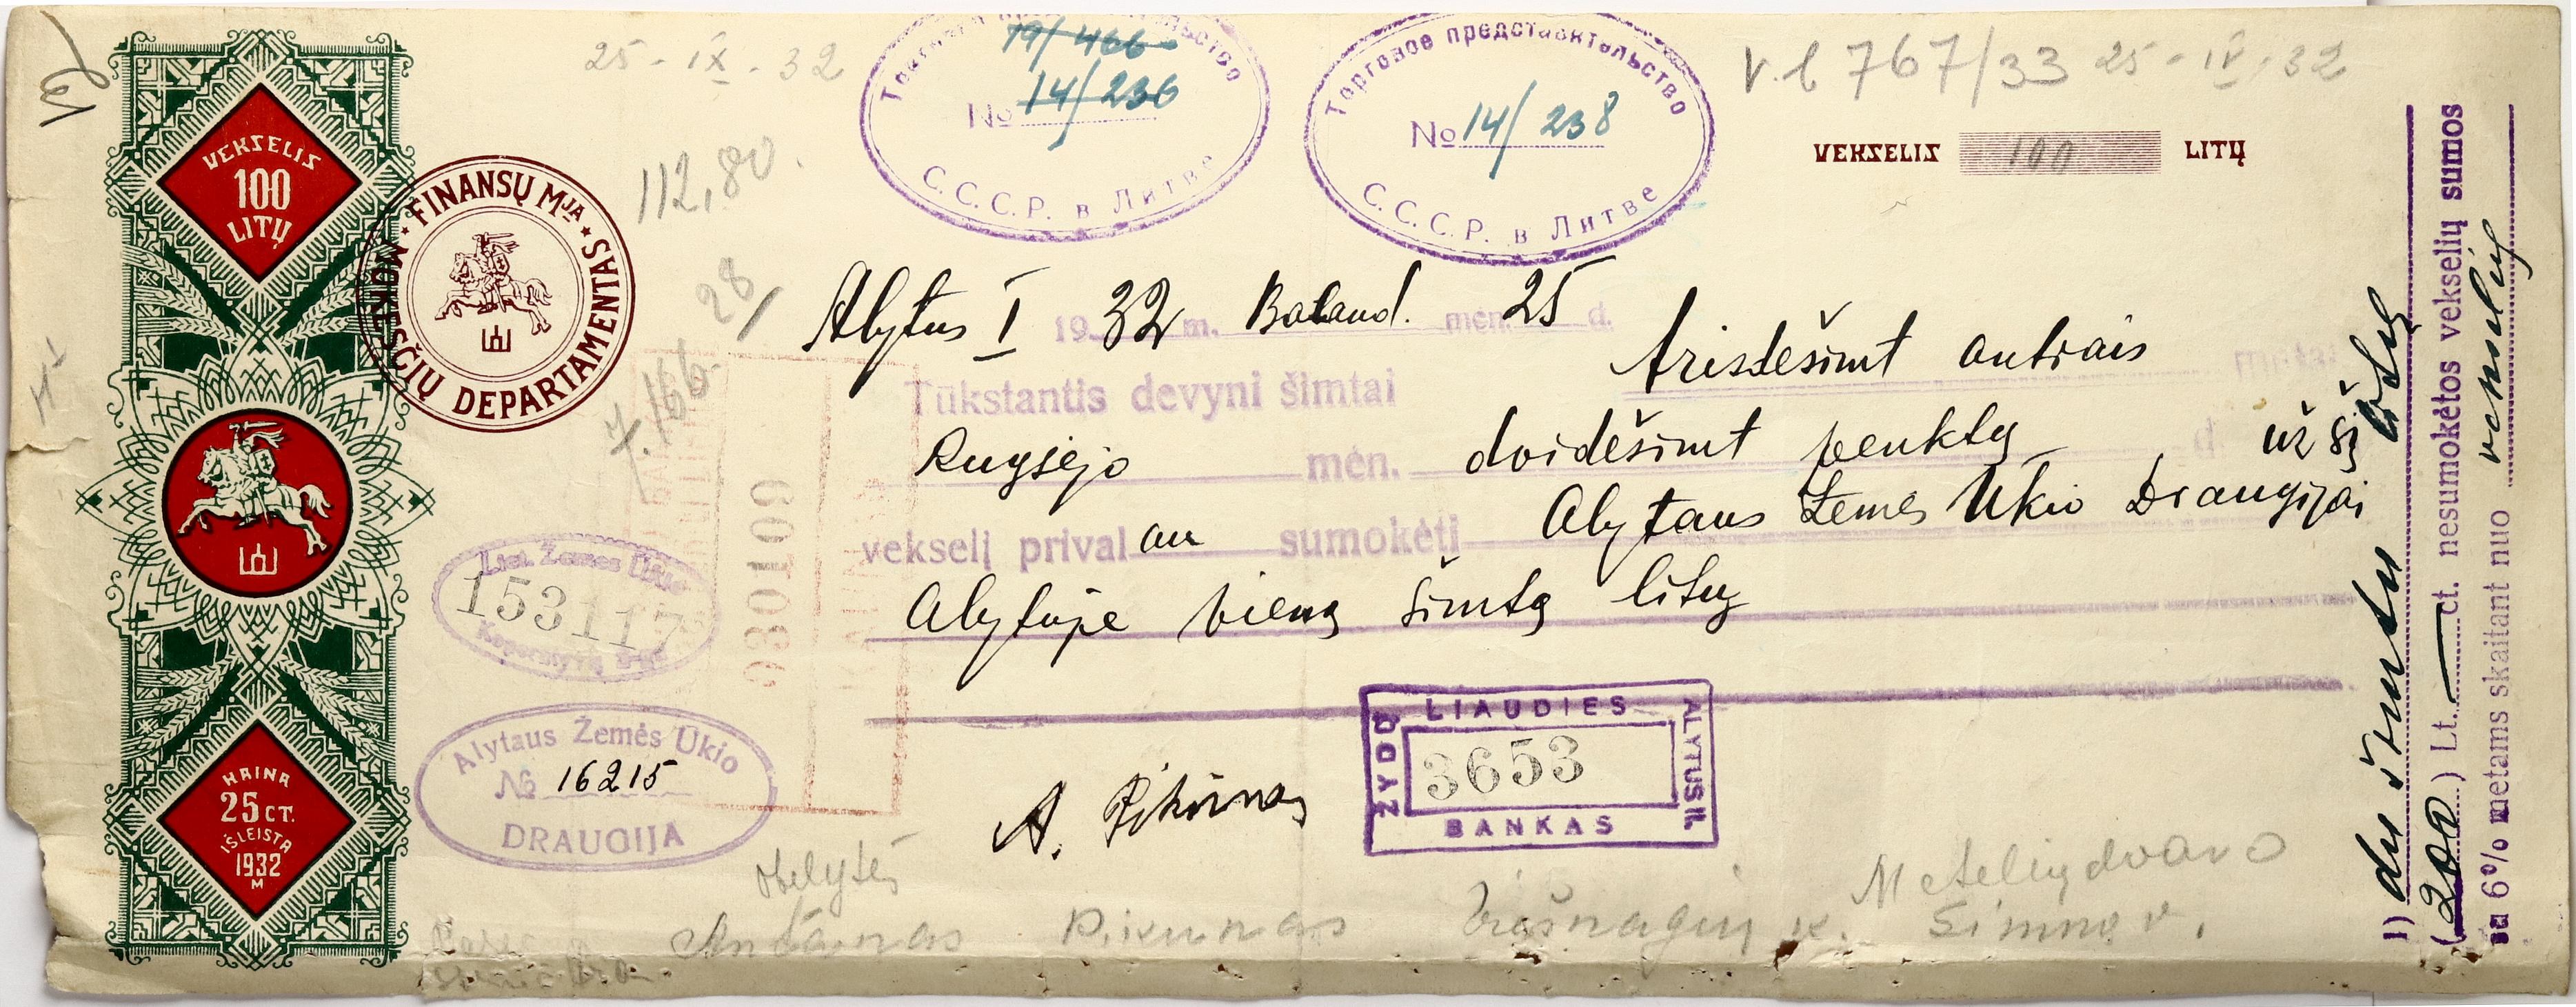 VEKSELIS
100
LITŲ
FINANSŲ MJA
MOKESČIŲ DEPARTAMENTAS
KAINA
25 CT.
IŠLEISTA
1932
M
25 - IX - 32
112,80.
28/
7.166-
19/466-
№ 14/236
С.С.С.Р. в Литве
Торговое представительство
№ 14/238
С.С.С.Р. в Литве
V.b 767/33 25 - IV - 32
VEKSELIS 100 LITŲ
Alytus I 19 32 m. Baland. mėn. 25 d.
Tūkstantis devyni šimtai trisdešimt antrais metais
Rugsėjo mėn. dvidešimt penktą d. už šį
vekselį prival au sumokėti Alytaus Žemės Ūkio Draugijai
Alytuje vieną šimtą litų
Liet. Žemės Ūkio
153117
Kooperatyvų S-ga
601030
Alytaus Žemės Ūkio
№ 16215
DRAUGIJA
A. Pikūnas
ŽYDŲ LIAUDIES
3653
BANKAS
ALYTUS II.
Obelytės
Antanas Pikunas k. Meteliųdvaro
Simno v.
1) du šimtu litų
(200) Lt. — ct. nesumokėtos vekselių sumos
su 6% metams skaitant nuo